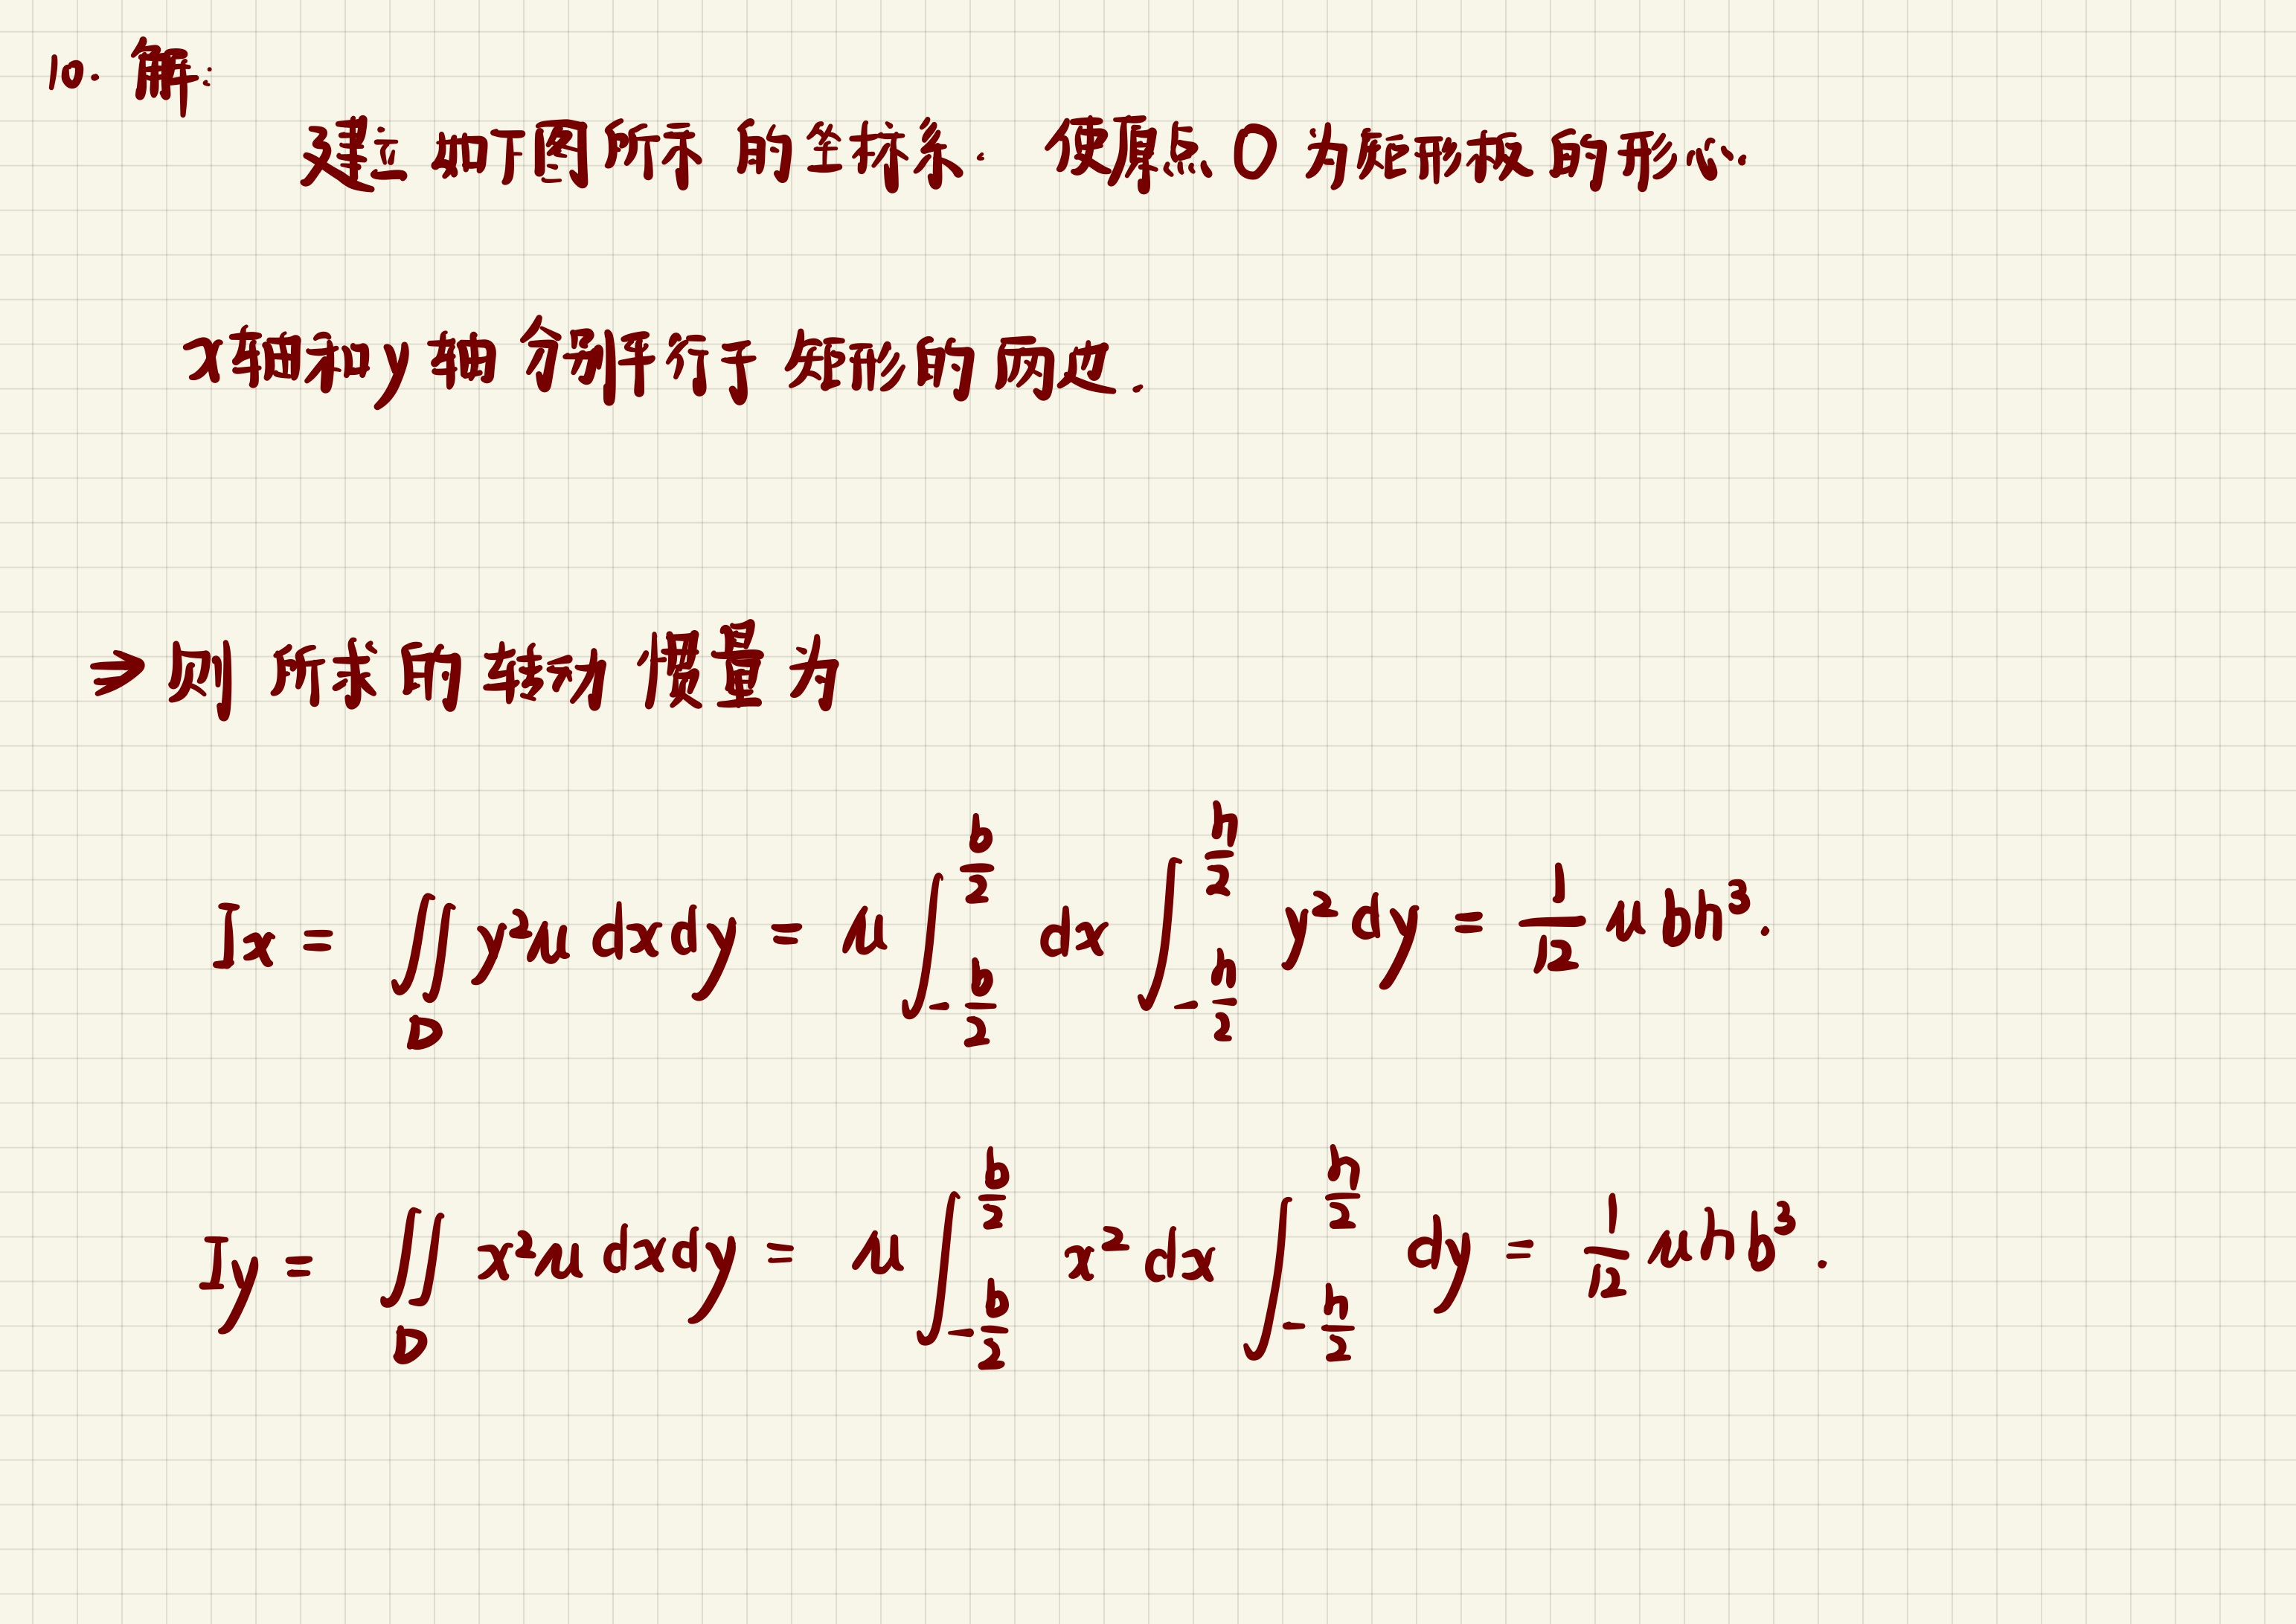 10. 解:
建立如下图所示的坐标系. 使原点O为矩形板的形心.
x轴和y轴分别平行于矩形的两边.
⇒则所求的转动惯量为
Ix = ∬_D y²μ dxdy = μ ∫_{-b/2}^{b/2} dx ∫_{-h/2}^{h/2} y² dy = 1/12 μbh³.
Iy = ∬_D x²μ dxdy = μ ∫_{-b/2}^{b/2} x² dx ∫_{-h/2}^{h/2} dy = 1/12 μhb³.